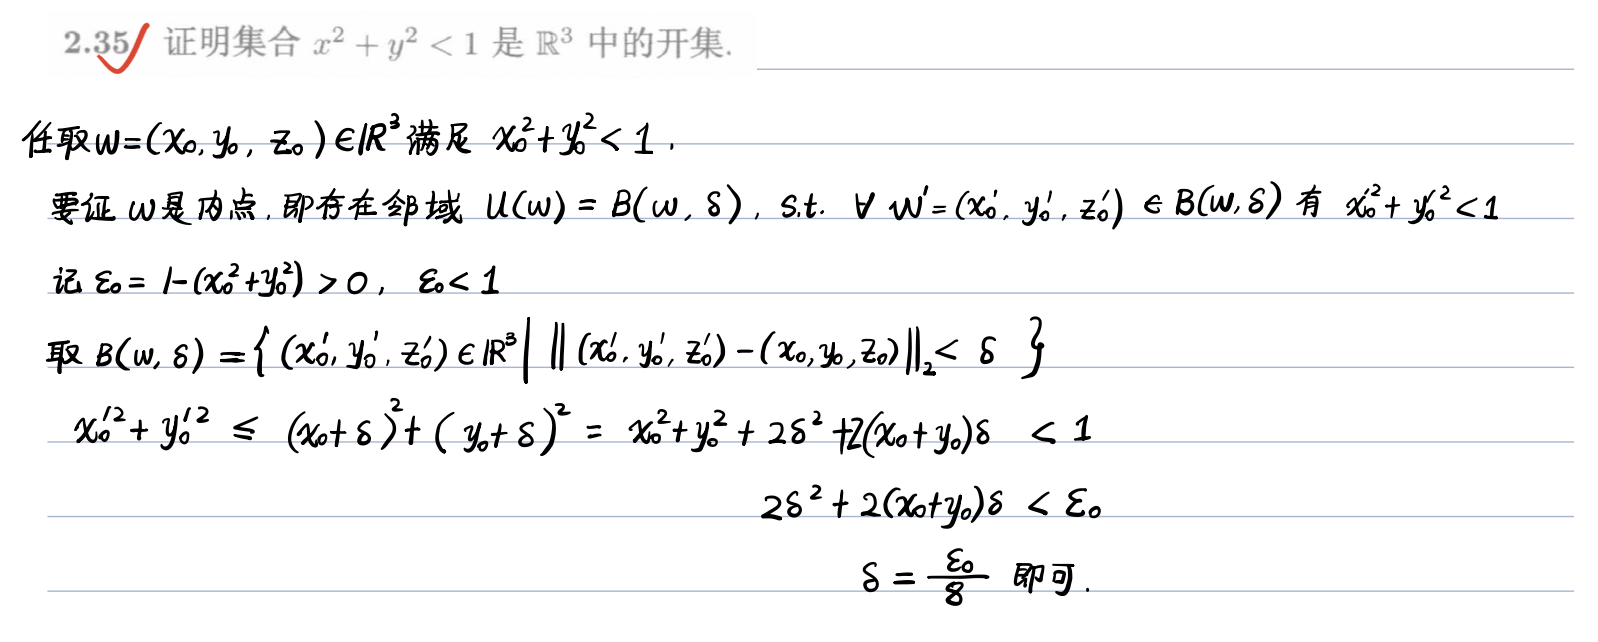 2.35 证明集合 x² + y² < 1 是 ℝ³ 中的开集.
任取w=(x₀, y₀, z₀)∈ℝ³满足 x₀²+y₀²<1.
要证 w是内点,即存在邻域 U(w) = B(w, δ), s.t. ∀ w'=(x₀', y₀', z₀') ∈ B(w, δ) 有 x₀'²+y₀'²<1
记 ε₀= 1-(x₀²+y₀²) > 0, ε₀< 1
取 B(w, δ) ={ (x₀', y₀', z₀')∈ℝ³ | ‖(x₀', y₀', z₀')-(x₀, y₀, z₀)‖₂< δ }
x₀'²+ y₀'² ≤ (x₀+δ)²+(y₀+δ)² = x₀²+y₀²+2δ²+2(x₀+y₀)δ < 1
2δ²+2(x₀+y₀)δ < ε₀
δ = ε₀/8 即可.